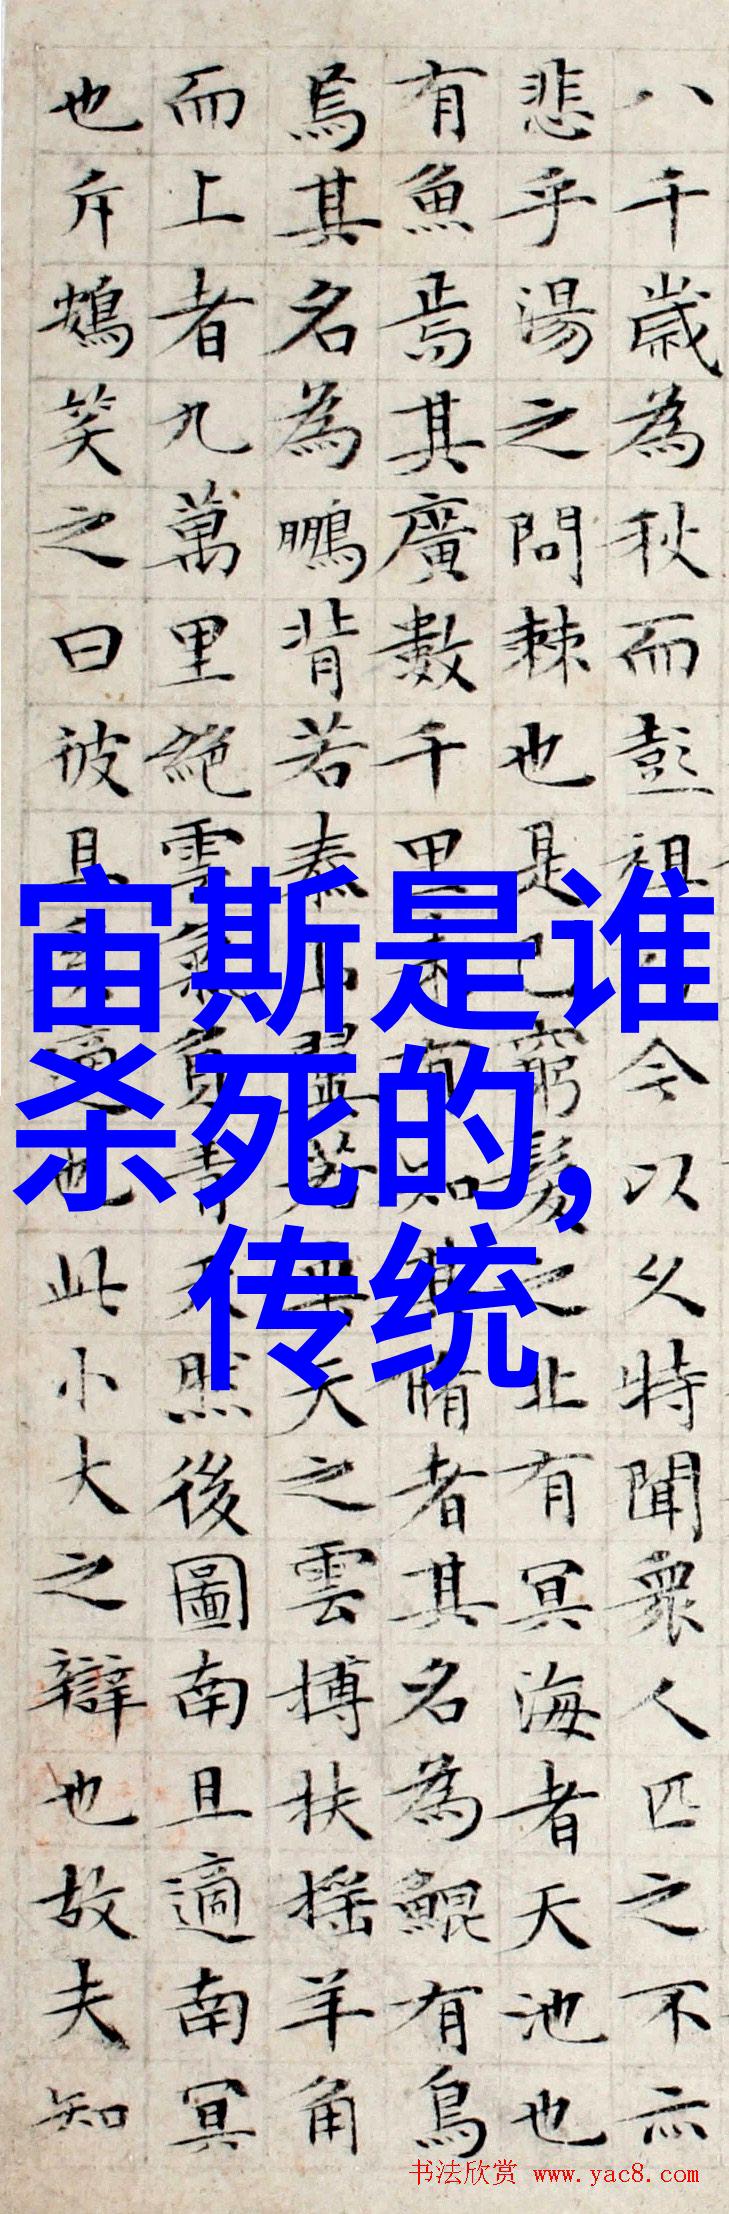 八千歲為秋而彭祖乃今以久特聞衆人匹之不亦
悲乎湯之問棘也是已窮髮之北有冥海者天池也
有魚焉其廣數千里未有知其脩者其名為鯤有鳥
焉其名為鵬背若泰山翼若垂天之雲搏扶搖羊角
而上者九萬里絕雲氣負青天然後圖南且適南冥
也斥鴳笑之曰彼且奚適也此小大之辯也故夫知
宙斯是谁
杀死的,
传统
书法欣赏 www.yac8.com